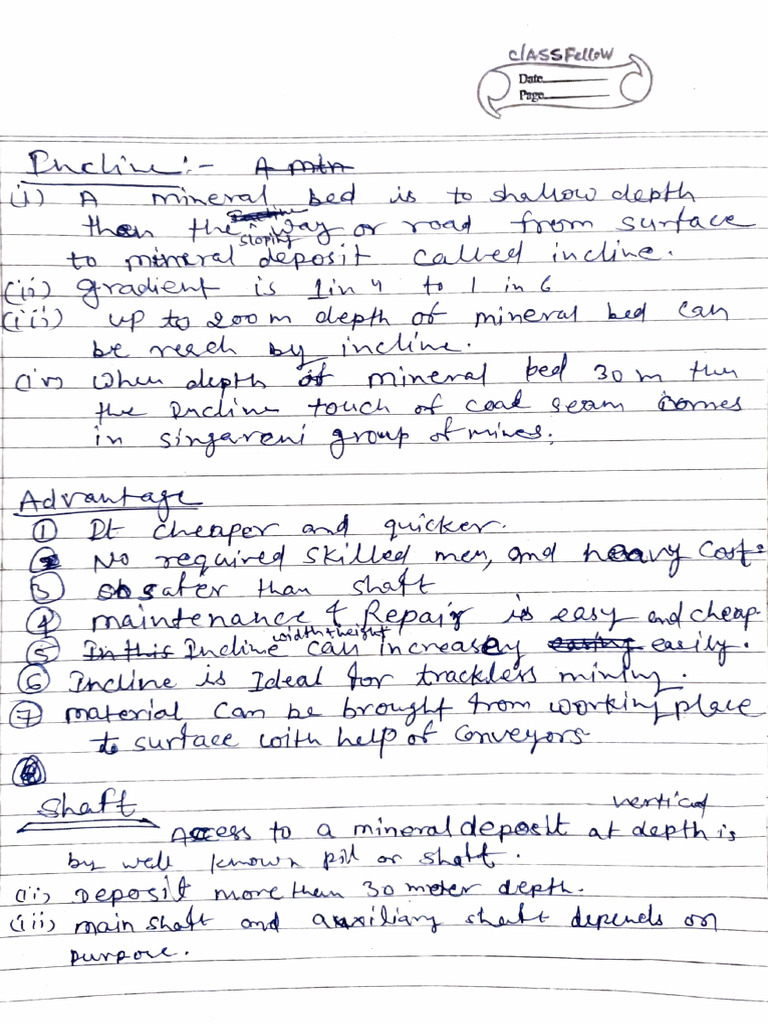 classFellow
Date
Page
Incline :- A min
(i) A mineral bed is to shallow depth
then the Incline sloping way or road from surface
to mineral deposit called incline.
(ii) gradient is 1 in 4 to 1 in 6
(iii) up to 200 m depth of mineral bed can
be reach by incline.
(iv) When depth of mineral bed 30 m then
the Incline touch of coal seam comes
in singareni group of mines.
Advantage
① It cheaper and quicker.
② No required skilled men, and heavy cost.
③ safer than shaft
④ maintenance & Repair is easy and cheap
⑤ In this Incline width & height can increasey easing easily.
⑥ Incline is Ideal for trackless mining.
⑦ material can be brought from working place
to surface with help of conveyors
Shaft
Access to a mineral deposit at depth is vertical
by well known pit or shaft.
(ii) Deposit more than 30 meter depth.
(iii) main shaft and auxiliary shaft depends on
purpose.